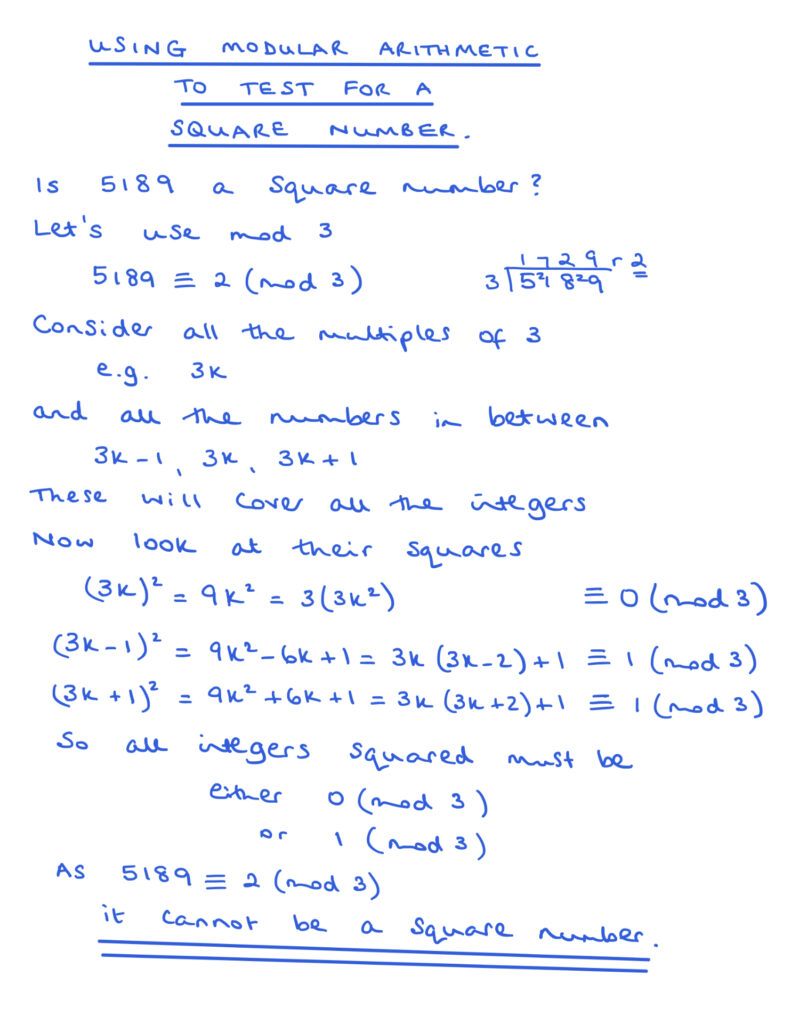 USING MODULAR ARITHMETIC
TO TEST FOR A
SQUARE NUMBER.
Is 5189 a square number?
Let's use mod 3
5189 ≡ 2 (mod 3)
1 7 2 9 r 2
3 5 ²1 8 ²9
Consider all the multiples of 3
e.g. 3k
and all the numbers in between
3k - 1, 3k, 3k + 1
These will cover all the integers
Now look at their squares
(3k)² = 9k² = 3(3k²) ≡ 0 (mod 3)
(3k - 1)² = 9k² - 6k + 1 = 3k (3k - 2) + 1 ≡ 1 (mod 3)
(3k + 1)² = 9k² + 6k + 1 = 3k (3k + 2) + 1 ≡ 1 (mod 3)
So all integers squared must be
either 0 (mod 3)
or 1 (mod 3)
As 5189 ≡ 2 (mod 3)
it cannot be a square number.